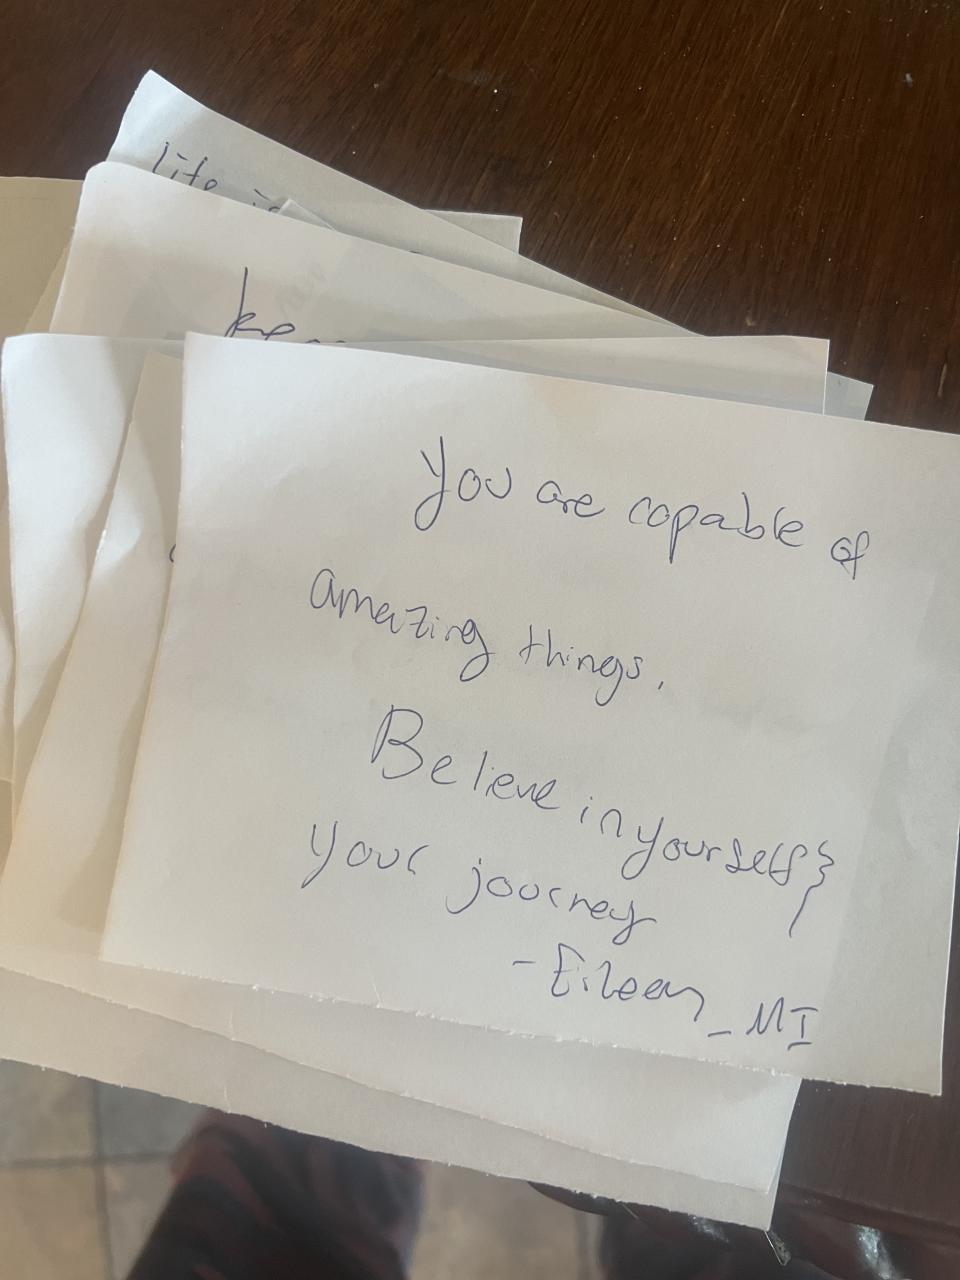 life is
ke
You are capable of
amazing things.
Believe in yourself &
your journey
- Eileen, MI